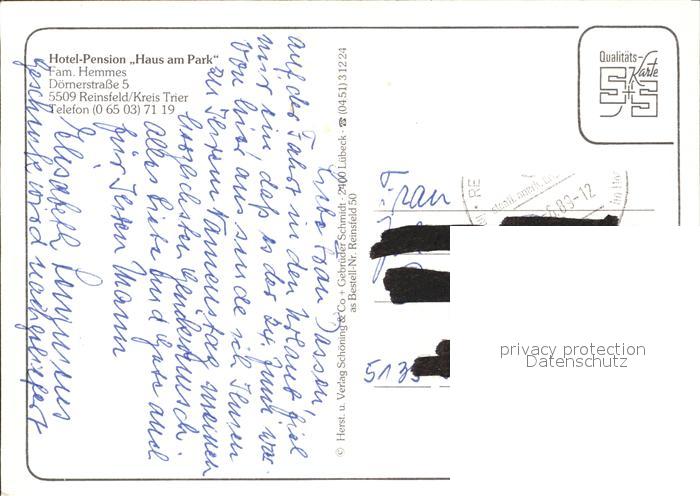 Hotel-Pension „Haus am Park"
Fam. Hemmes
Dörnerstraße 5
5509 Reinsfeld/Kreis Trier
Telefon (0 65 03) 71 19
Liebe Frau Dassen!
auf der Fahrt in den Urlaub fiel
mir ein, daß es der 24. Juni war.
Von hier aus sende ich Ihnen
zu Ihrem Namenstag meinen
herzlichsten Glückwunsch.
Alles Liebe und Gute auch
für Ihren Mann
Elisabeth
Geschenk wird nachgeliefert
© Herst. u. Verlag Schöning & Co + Gebrüder Schmidt · 2400 Lübeck · ☎ (04 51) 3 12 24
as Bestell-Nr. Reinsfeld 50
Qualitäts-
Karte
S+S
staatl. anerk.
6.89-12
Frau
5135
privacy protection
Datenschutz